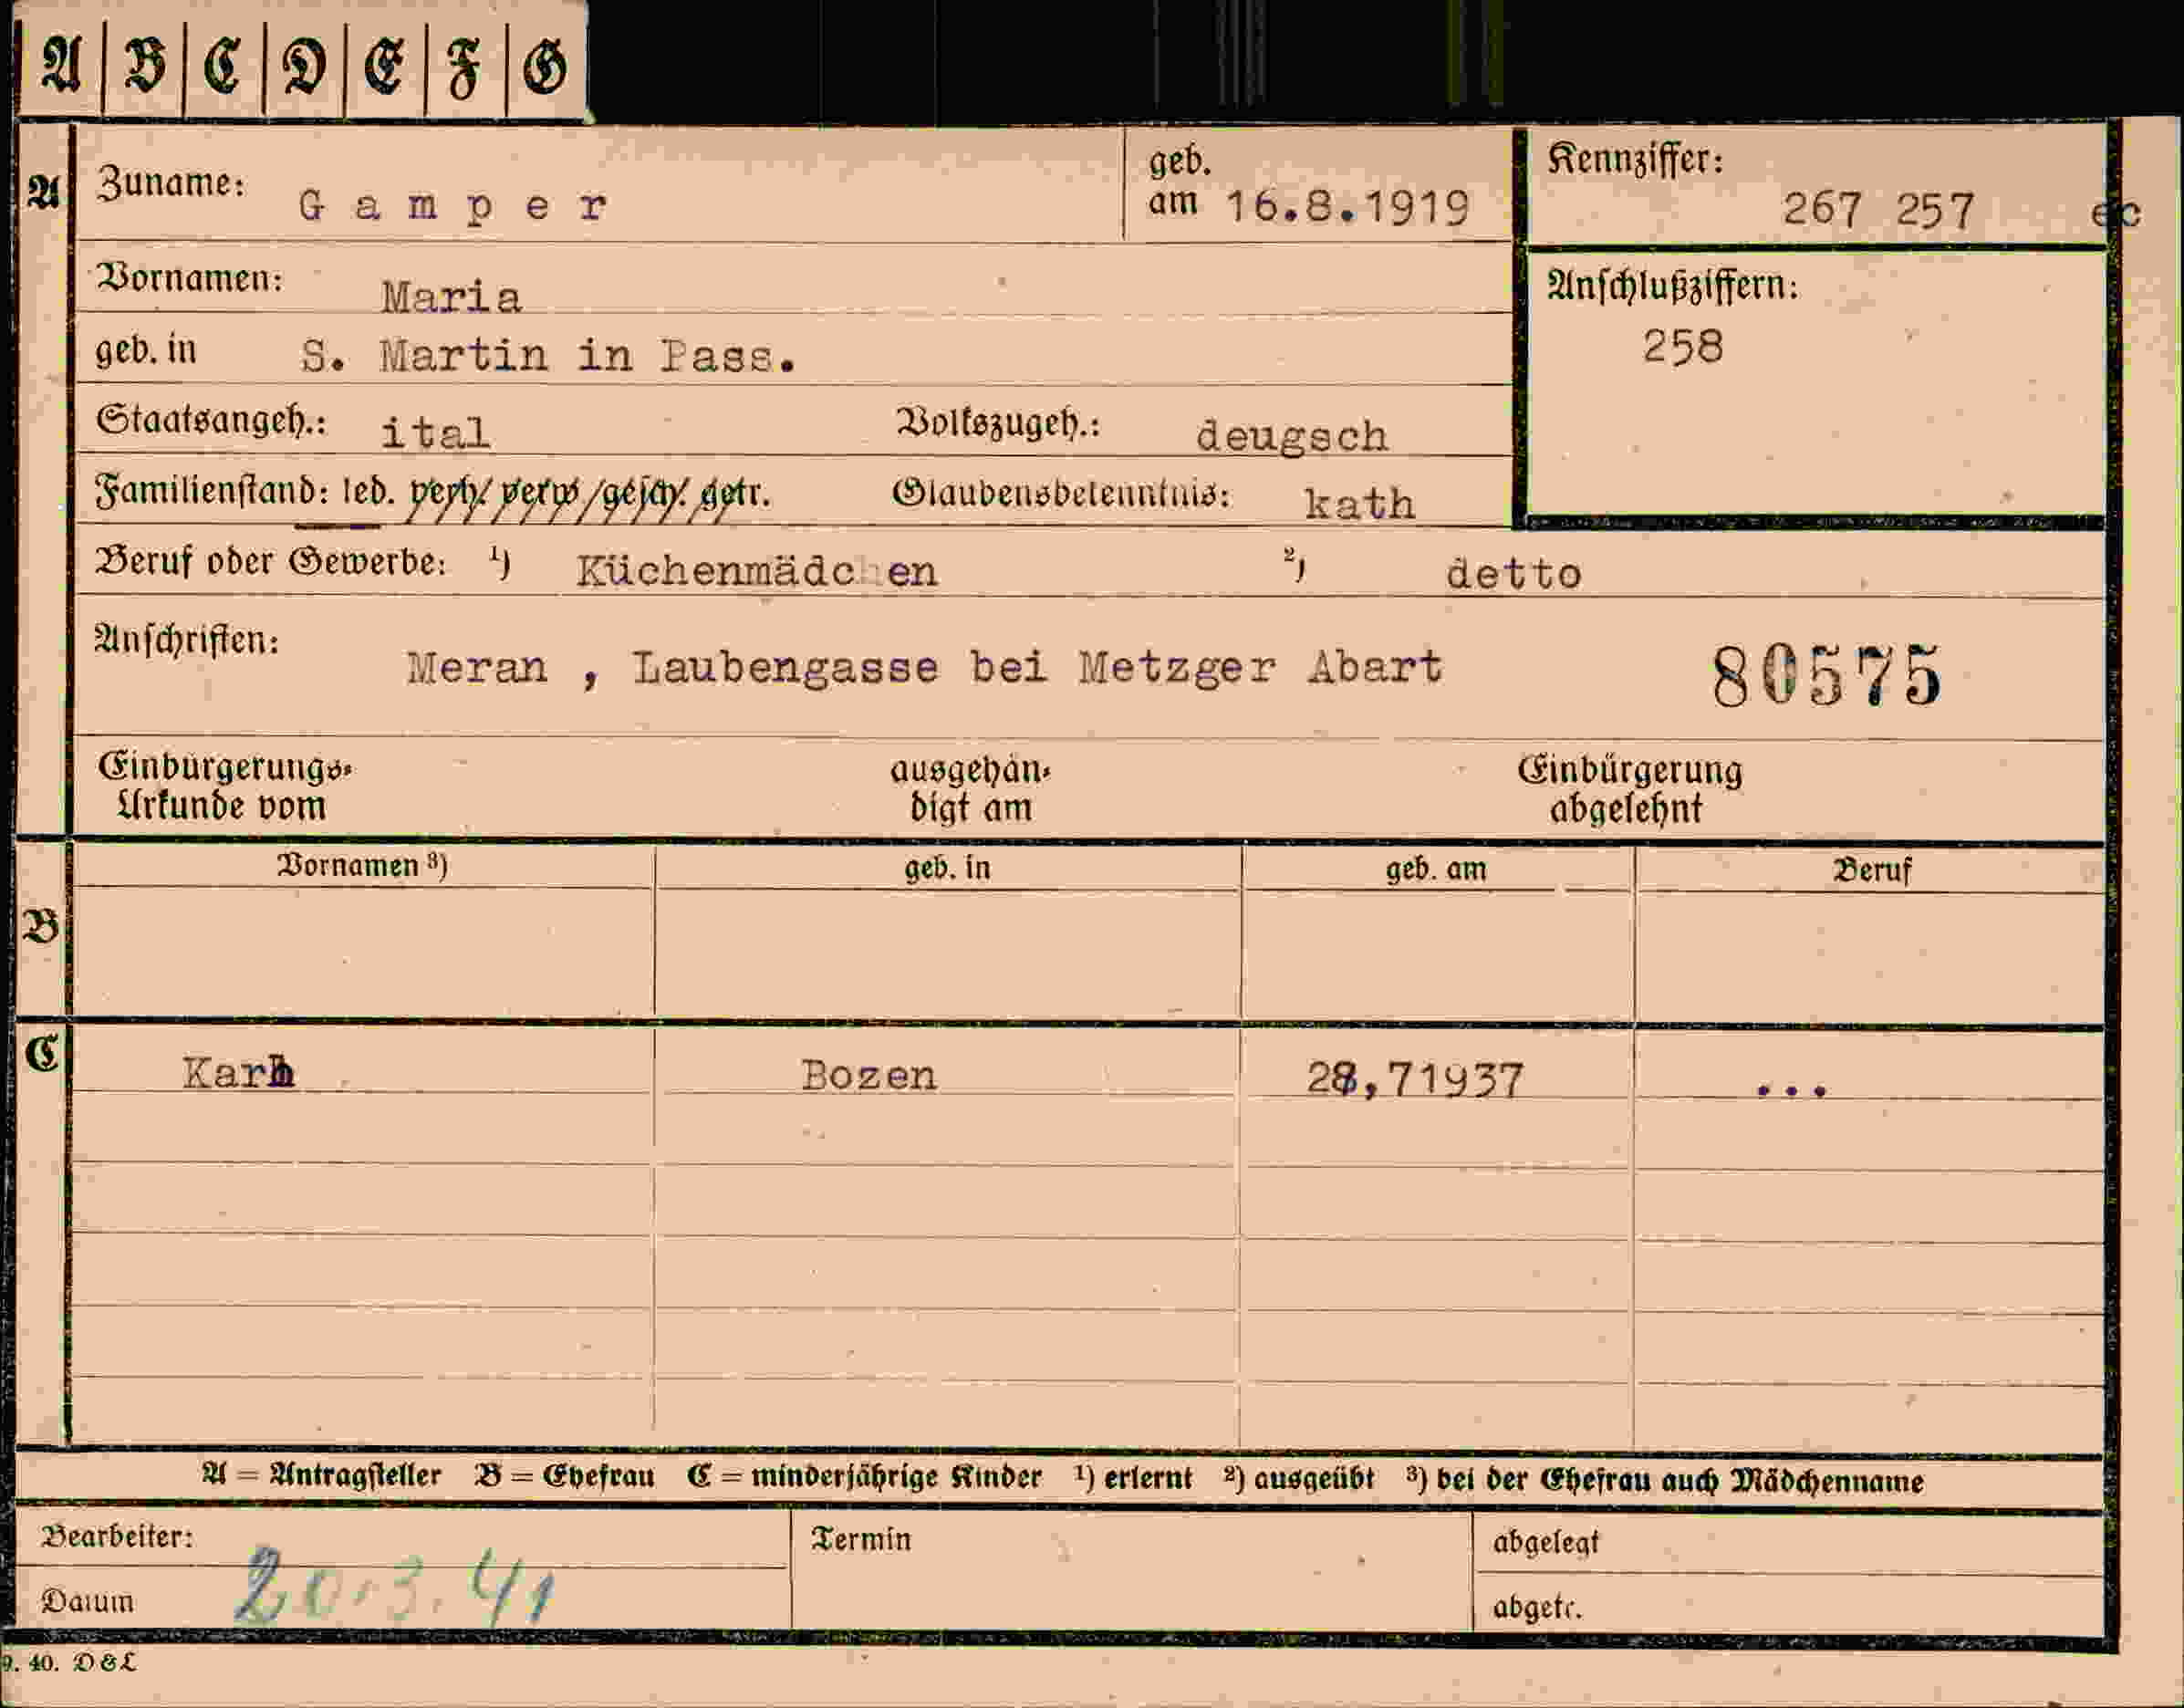 A B C D E F G
A Zuname: Gamper geb. am 16.8.1919 Kennziffer: 267 257 ec
Vornamen: Maria
Anschlußziffern: 258
geb. in S. Martin in Pass.
Staatsangeh.: ital Volkszugeh.: deugsch
Familienstand: led. verh. verw. gesch. getr. Glaubensbekenntnis: kath
Beruf oder Gewerbe: ¹) Küchenmädchen ²) detto
Anschriften: Meran , Laubengasse bei Metzger Abart 80575
Einbürgerungs- ausgehän- Einbürgerung
Urkunde vom digt am abgelehnt
Vornamen ³) geb. in geb. am Beruf
B
C Bozen 28,71937 ...
A = Antragsteller B = Ehefrau C = minderjährige Kinder ¹) erlernt ²) ausgeübt ³) bei der Ehefrau auch Mädchenname
Bearbeiter: Termin abgelegt
Datum 20.3.41 abgetr.
9. 40. D & L